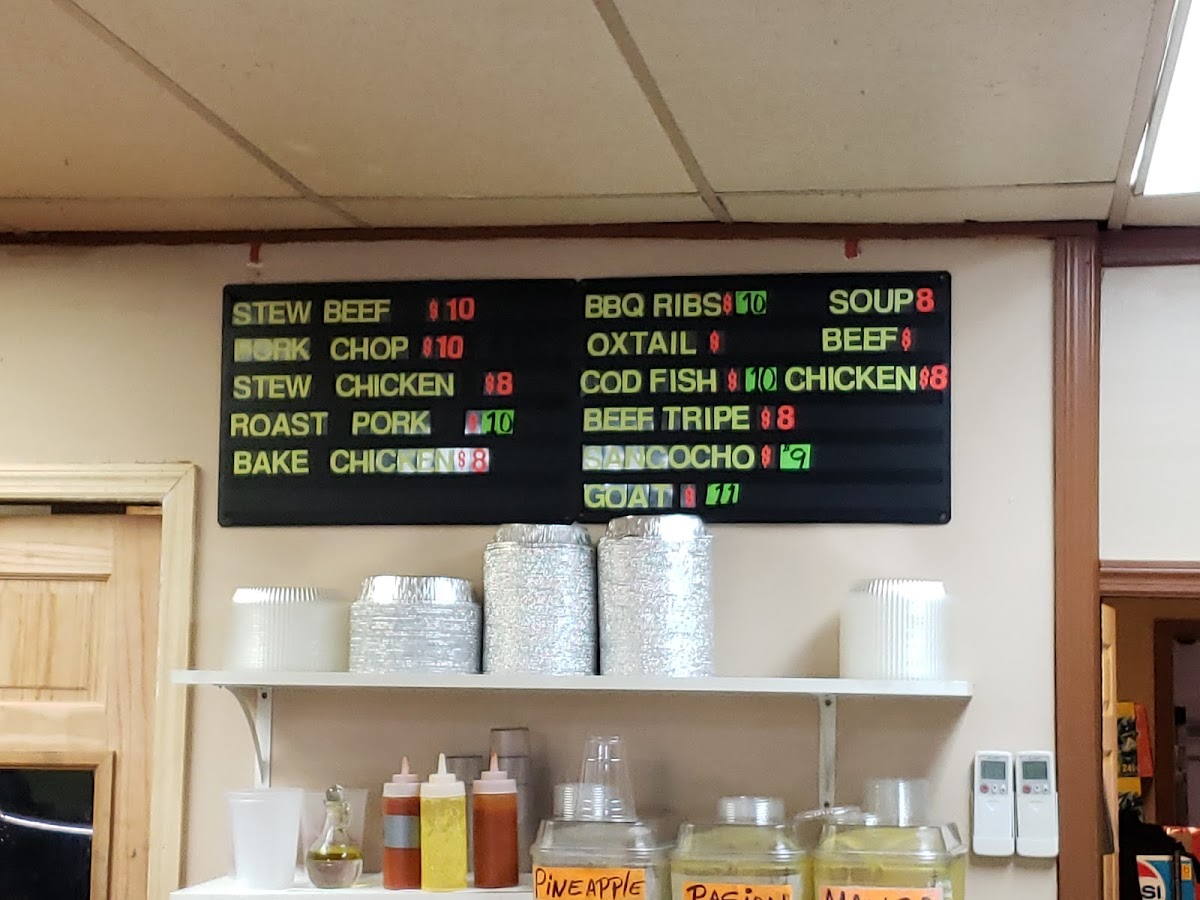 STEW BEEF $10
PORK CHOP $10
STEW CHICKEN $8
ROAST PORK $10
BAKE CHICKEN $8
BBQ RIBS $10
OXTAIL $
COD FISH $10
BEEF TRIPE $8
SANCOCHO $9
GOAT $11
SOUP 8
BEEF $
CHICKEN $8
PINEAPPLE
PASION
SI